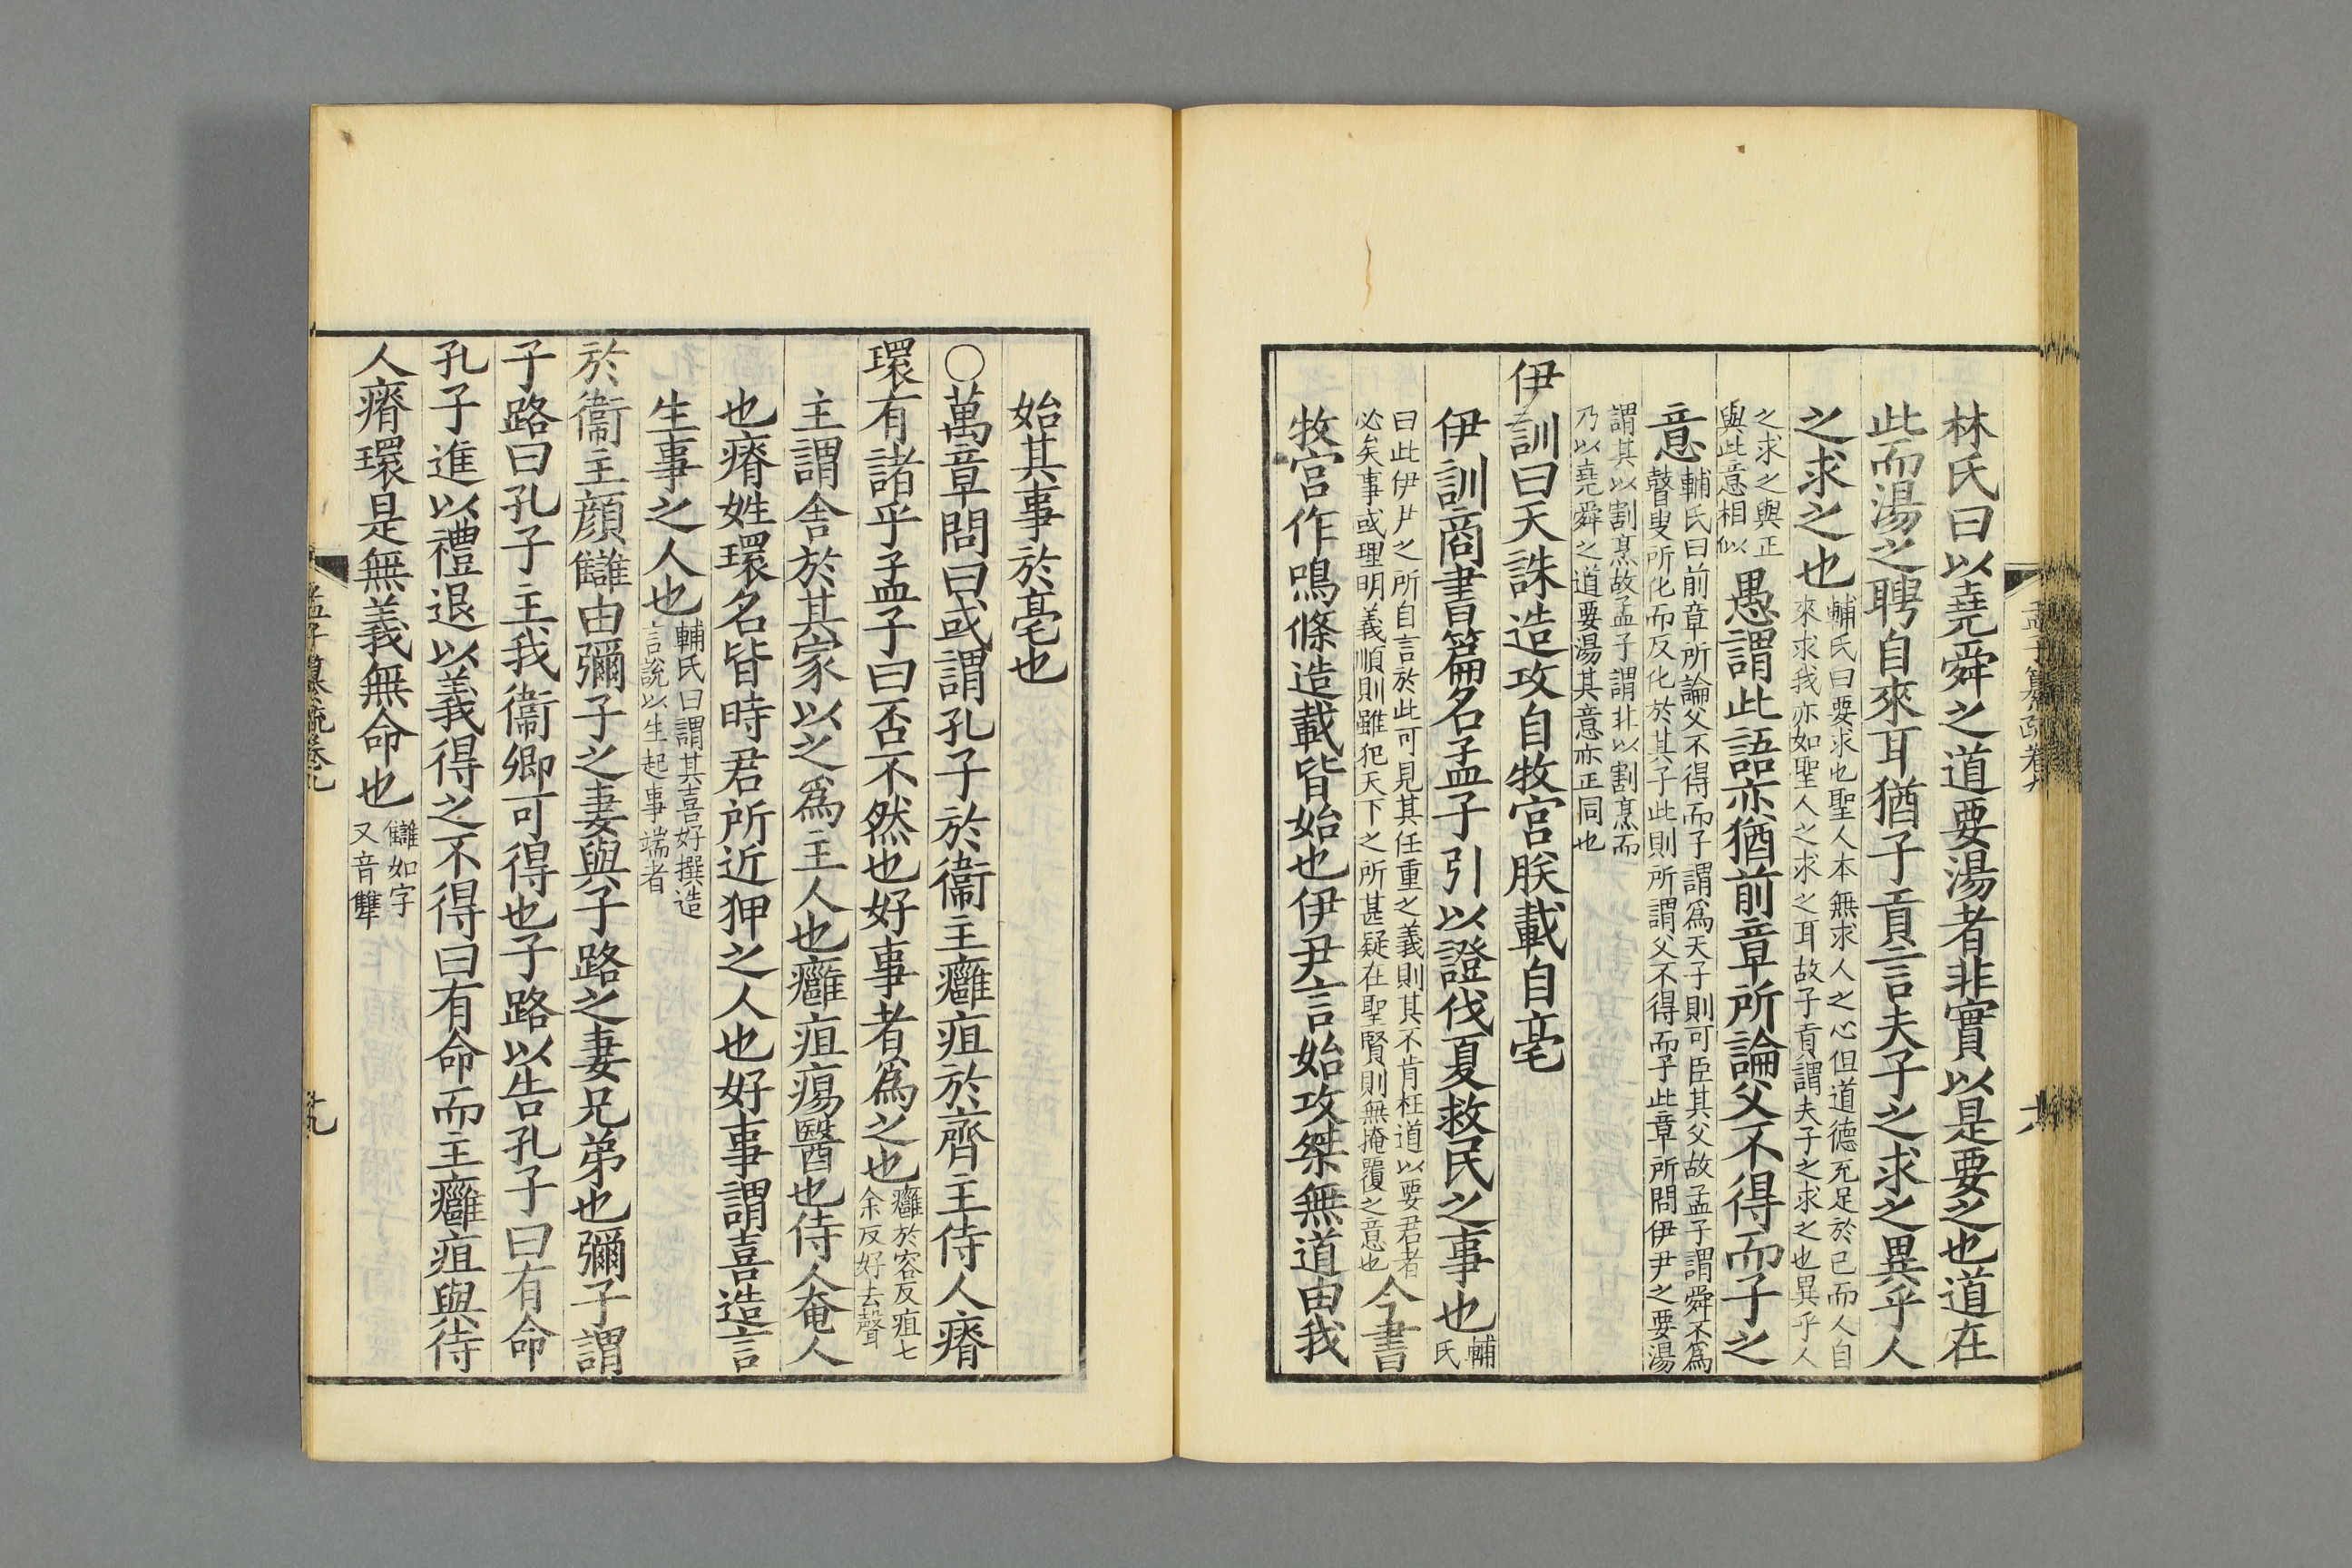 林氏曰以堯舜之道要湯者非實以是要之也道在
此而湯之聘自來耳猶子貢言夫子之求之異乎人
之求之也輔氏曰要求也聖人本無求人之心但道德充足於己而人自
來求我亦如聖人之求之耳故子貢謂夫子之求之也異乎人
之求之與正
與此意相似愚謂此語亦猶前章所論父不得而子之
意輔氏曰前章所論父不得而子謂爲天子則可臣其父故孟子謂舜不爲
瞽叟所化而反化於其子此則所謂父不得而子此章所問伊尹之要湯
謂其以割烹故孟子謂非以割烹而
乃以堯舜之道要湯其意亦正同也
伊訓曰天誅造攻自牧宮朕載自亳
伊訓商書篇名孟子引以證伐夏救民之事也輔
氏
曰此伊尹之所自言於此可見其任重之義則其不肯枉道以要君者
必矣事或理明義順則雖犯天下之所甚疑在聖賢則無掩覆之意也今書
牧宮作鳴條造載皆始也伊尹言始攻桀無道由我
孟子纂疏卷九
始其事於亳也
○萬章問曰或謂孔子於衞主癰疽於齊主侍人瘠
環有諸乎孟子曰否不然也好事者爲之也癰於容反疽七
余反好去聲
主謂舍於其家以之爲主人也癰疽瘍醫也侍人奄人
也瘠姓環名皆時君所近狎之人也好事謂喜造言
生事之人也輔氏曰謂其喜好撰造
言說以生起事端者
於衞主顏讎由彌子之妻與子路之妻兄弟也彌子謂
子路曰孔子主我衞卿可得也子路以告孔子曰有命
孔子進以禮退以義得之不得曰有命而主癰疽與侍
人瘠環是無義無命也讎如字
又音犨
孟子纂疏卷九
十九